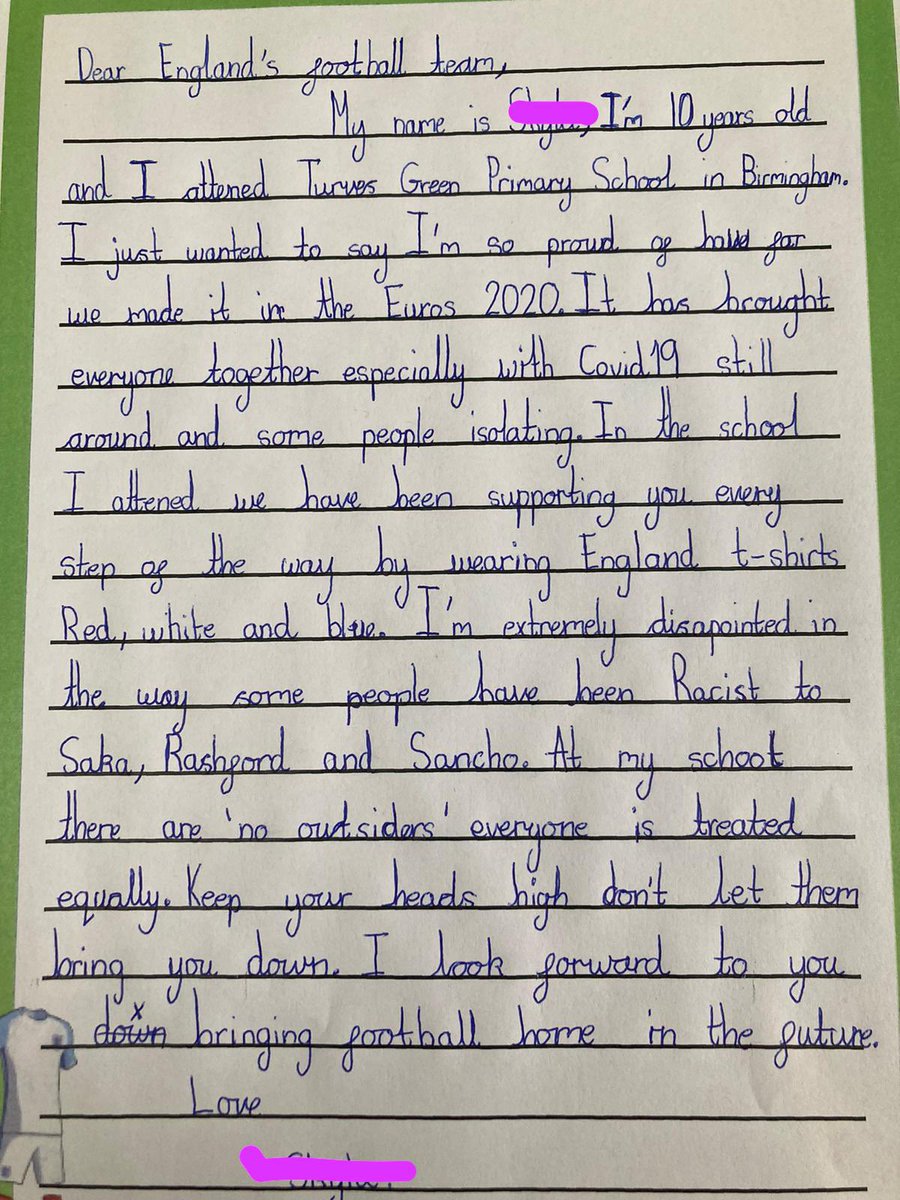 Dear England's football team,
My name is I'm 10 years old
and I attened Turves Green Primary School in Birmingham.
I just wanted to say I'm so proud of how far
we made it in the Euros 2020. It has brought
everyone together especially with Covid19 still
around and some people isolating. In the school
I attened we have been supporting you every
step of the way by wearing England t-shirts
Red, white and blue. I'm extremely disapointed in
the way some people have been Racist to
Saka, Rashford and Sancho. At my school
there are 'no outsiders' everyone is treated
equally. Keep your heads high don't let them
bring you down. I look forward to you
down bringing football home in the future.
Love